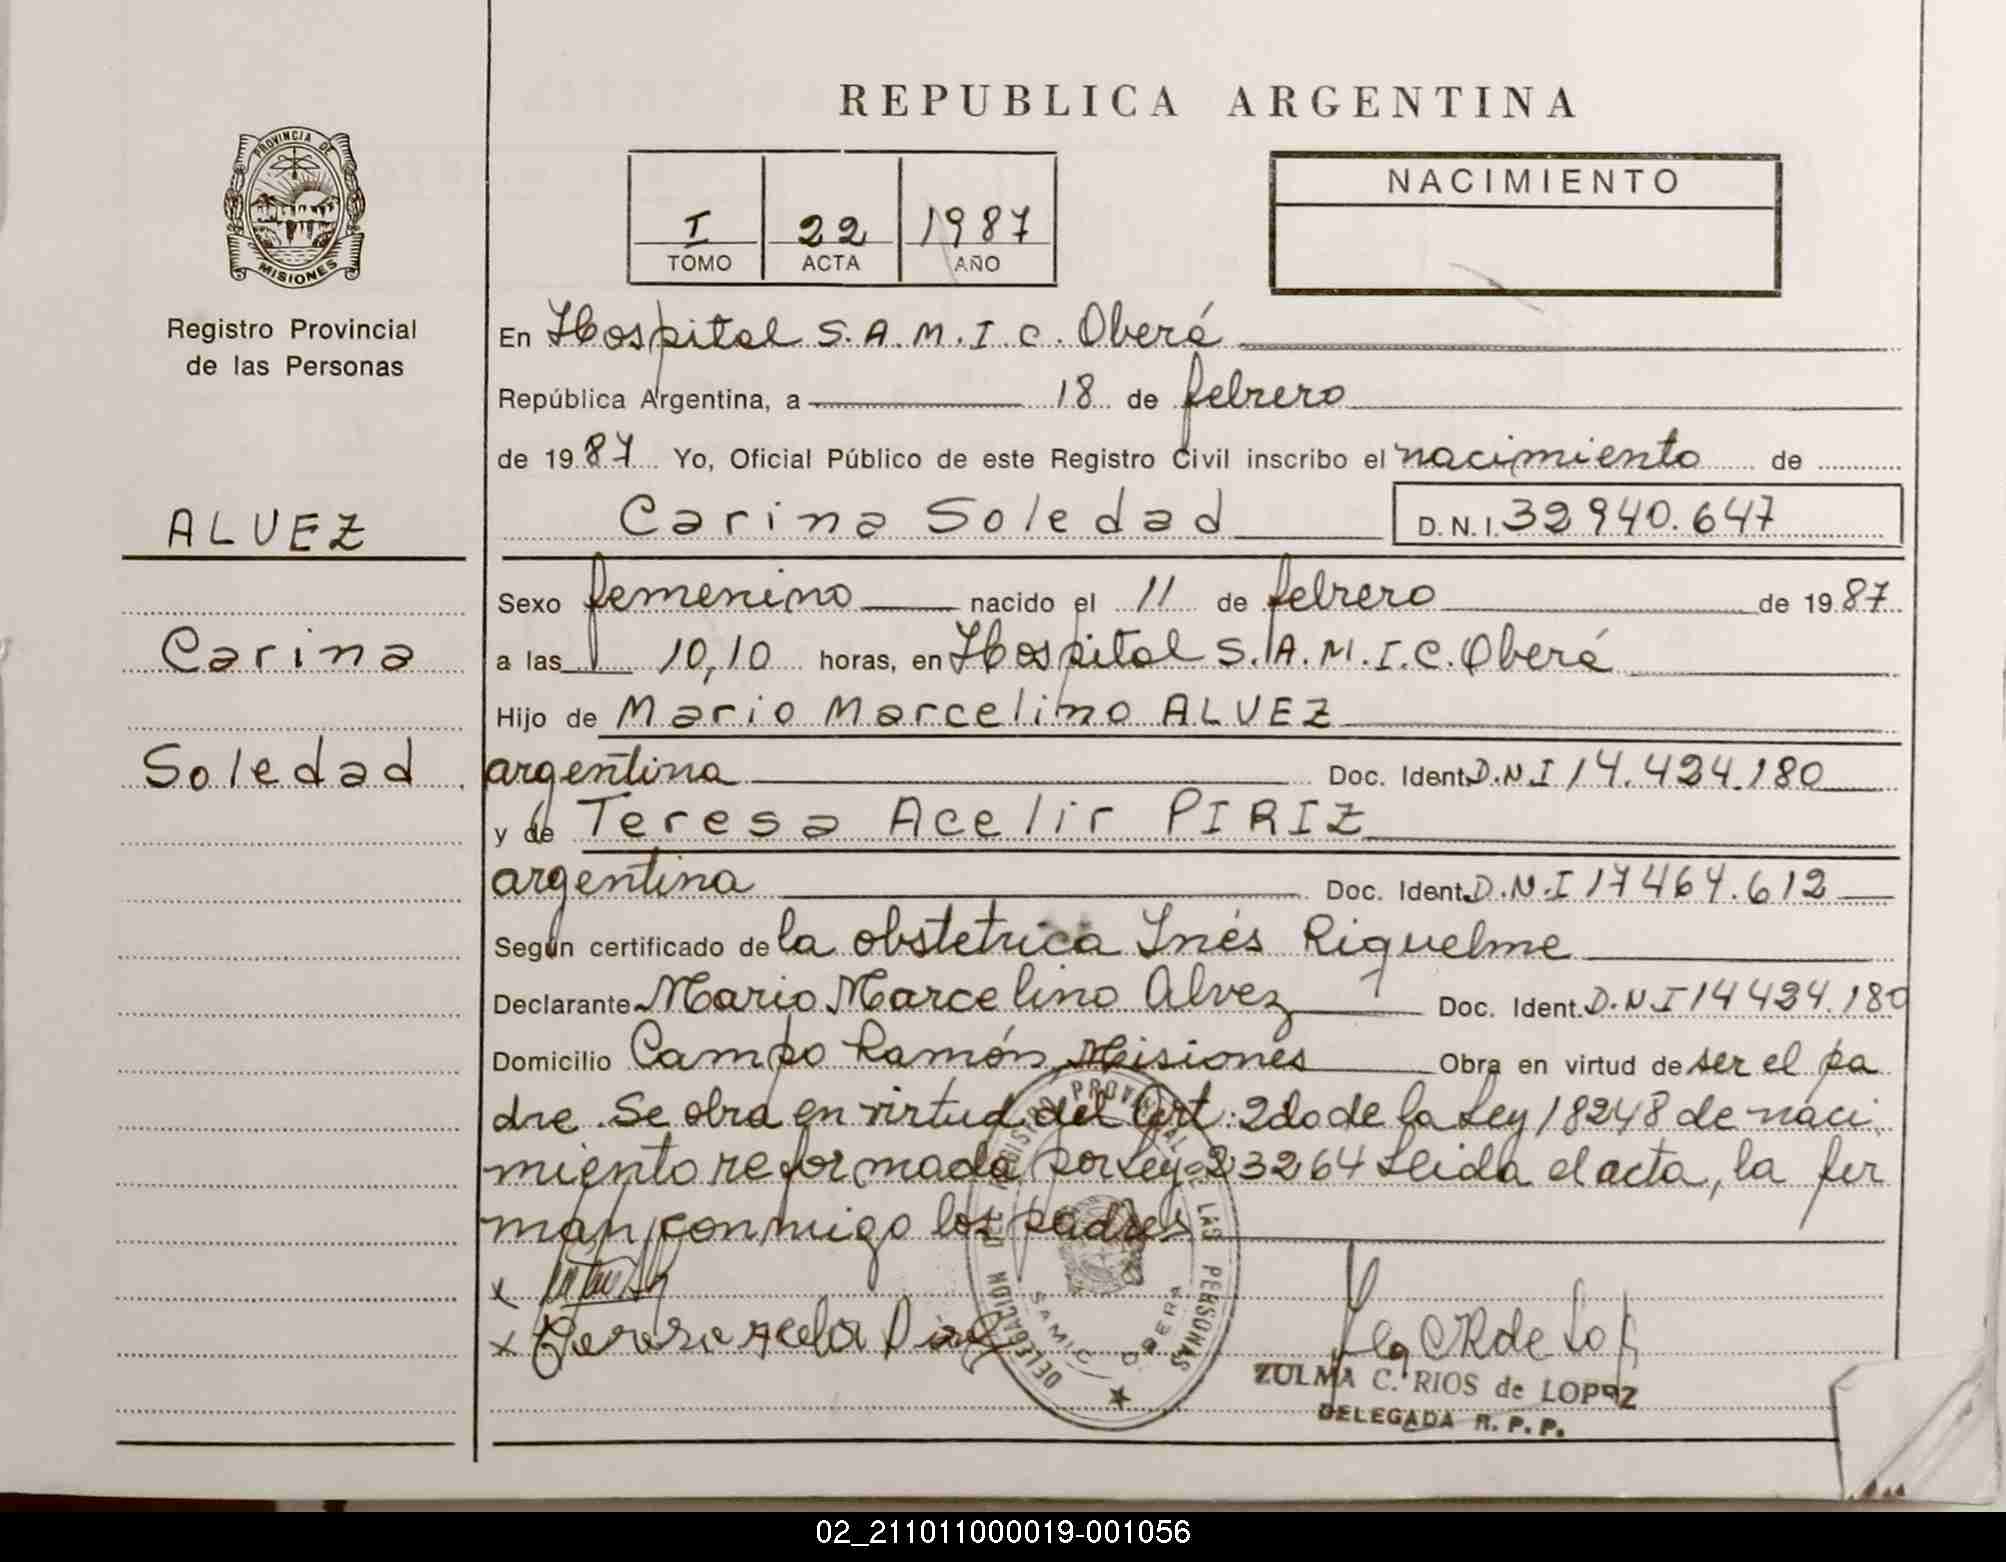 REPUBLICA ARGENTINA
PROVINCIA DE
MISIONES
Registro Provincial
de las Personas
I 22 1987
TOMO ACTA AÑO
NACIMIENTO
En Hospital S.A.M.I.C. Oberá
República Argentina, a 18 de febrero
de 1987 Yo, Oficial Público de este Registro Civil inscribo el nacimiento de
Carina Soledad D.N.I. 32940.647
ALVEZ
Carina
Soledad
Sexo femenino nacido el 11 de febrero de 1987
a las 10,10 horas, en Hospital S.A.M.I.C. Oberá
Hijo de Mario Marcelino ALVEZ
argentina Doc. Ident. D.N.I 14.424.180
y de Teresa Acelir PIRIZ
argentina Doc. Ident. D.N.I 17464.612
Según certificado de la obstetrica Inés Riquelme
Declarante Mario Marcelino Alvez Doc. Ident. D.N.I 14424.180
Domicilio Campo Ramón, Misiones Obra en virtud de ser el pa
dre. Se obra en virtud del Art. 2do de la Ley 18248 de naci
miento reformada por Ley 23264 Leida el acta, la fir
man conmigo los padres
x
x
DELEGACION DEL REGISTRO PROVINCIAL DE LAS PERSONAS
SAMIC OBERA
ZULMA C. RIOS de LOPEZ
DELEGADA R.P.P.
02_211011000019-001056